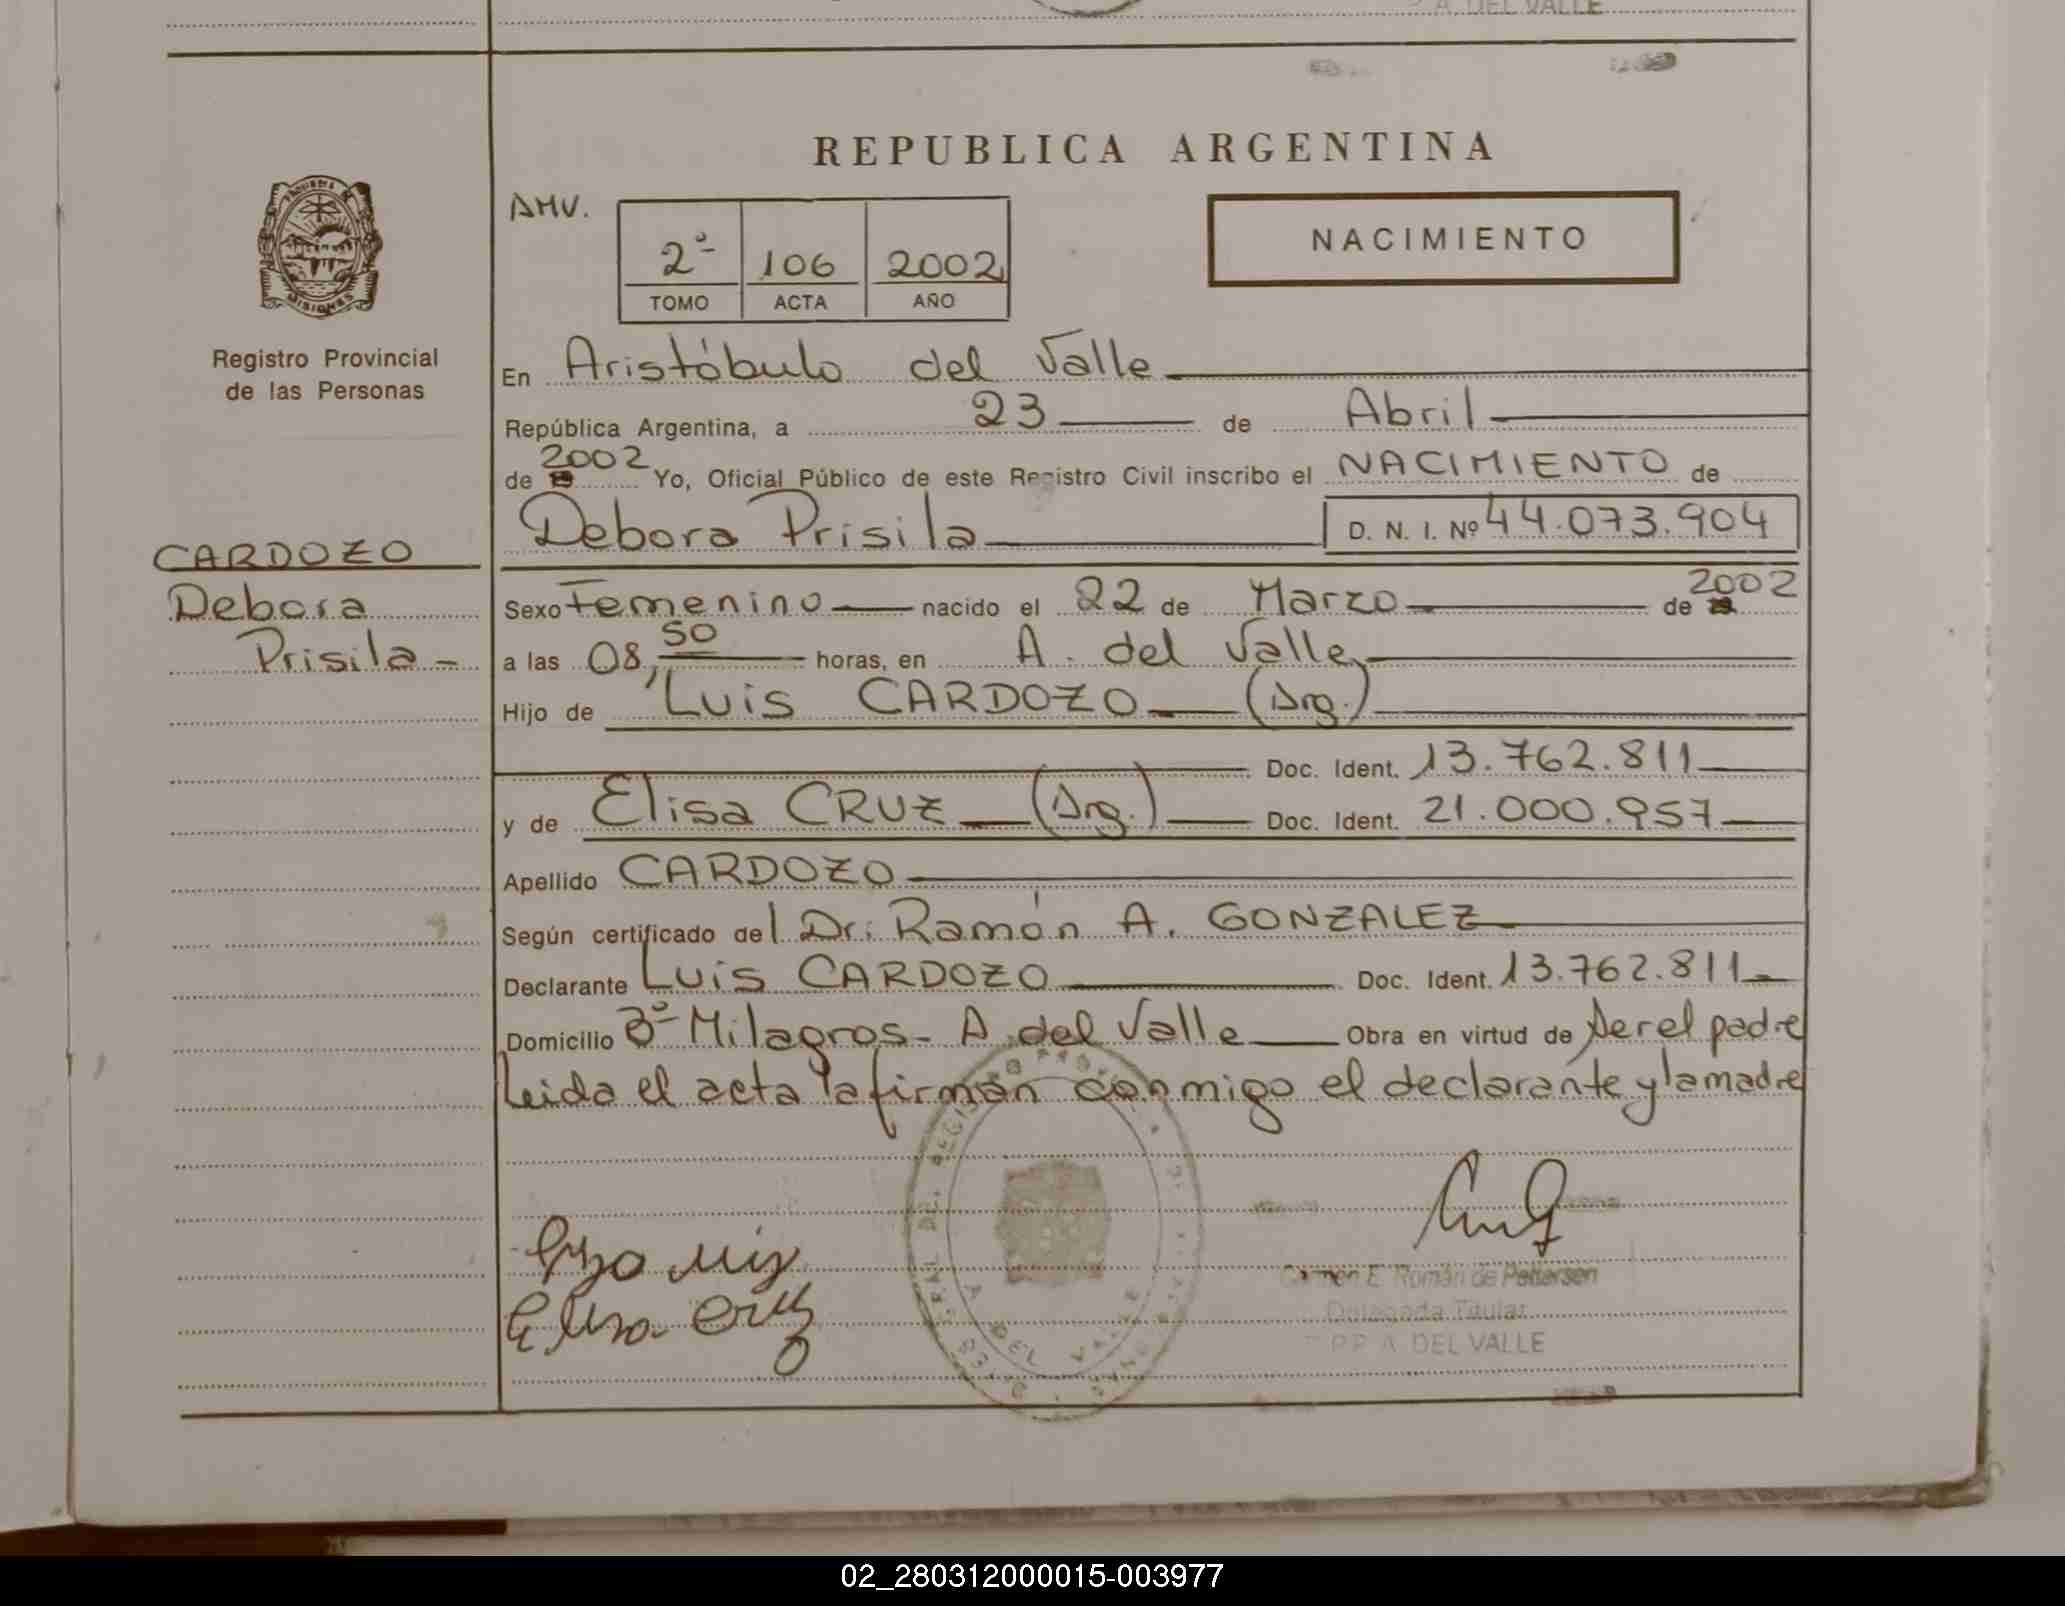 A DEL VALLE
REPUBLICA ARGENTINA
AMV.
2º 106 2002
TOMO ACTA AÑO
NACIMIENTO
Registro Provincial
de las Personas
En Aristóbulo del Valle
República Argentina, a 23 de Abril
de 2002 Yo, Oficial Público de este Registro Civil inscribo el NACIMIENTO de
Debora Prisila D. N. I. Nº 44.073.904
CARDOZO
Debora
Prisila -
Sexo Femenino nacido el 22 de Marzo de 2002
a las 08,50 horas, en A. del Valle
Hijo de Luis CARDOZO (Arg.)
Doc. Ident. 13.762.811
y de Elisa CRUZ (Arg.) Doc. Ident. 21.000.957
Apellido CARDOZO
Según certificado del Dr: Ramón A. GONZALEZ
Declarante Luis CARDOZO Doc. Ident. 13.762.811
Domicilio Bº Milagros - A. del Valle Obra en virtud de ser el padre
Leida el acta la firman conmigo el declarante y la madre
Elisa Cruz
Carmen E. Román de Pettersen
Delegada Titular
A DEL VALLE
A DEL VALLE
02_280312000015-003977